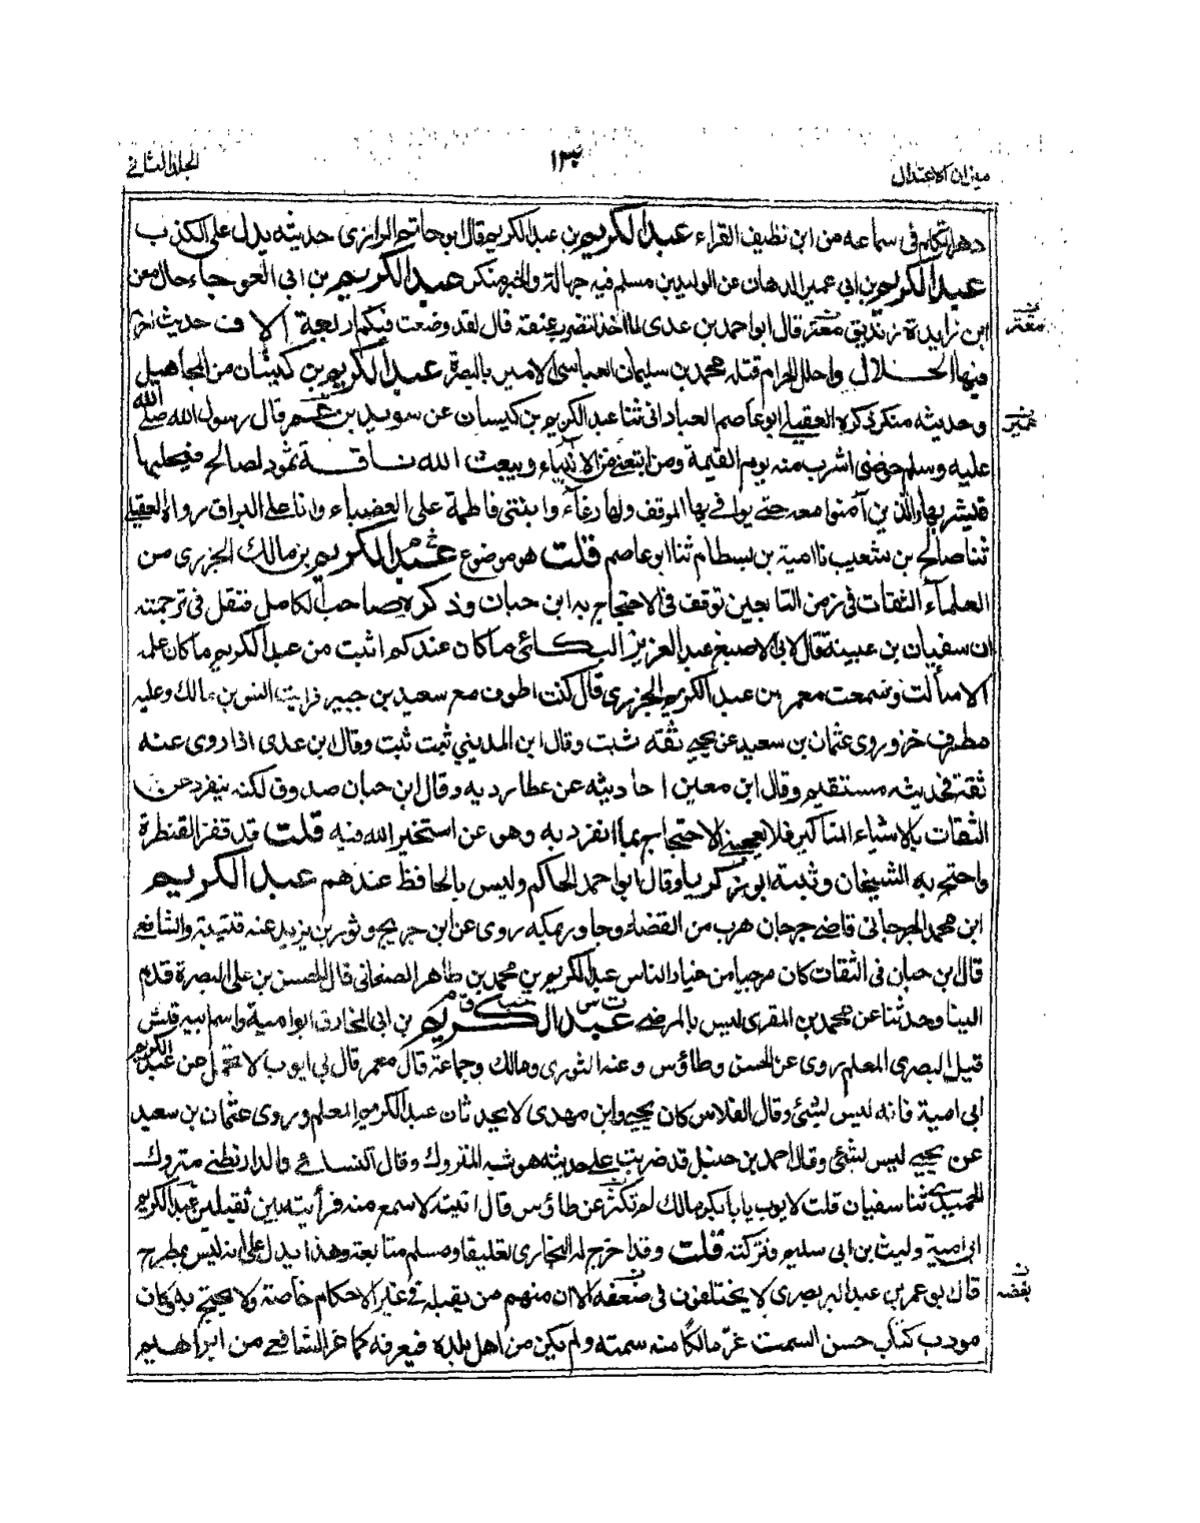 ميزان الاعتدال
المجلد الثاني
دهرا تكلم فى سماعه من ابن نظيف القراء عبد الكريم بن عبد الكريم قال ابن حاتم الرازى حديثه يدل على الكذب
عبد الكريم بن ابى عمير الدهان عن الوليد بن مسلم فيه جهالة والخبر منكر عبد الكريم بن ابى العوجاء خال معن
ابن زايدة زنديق مغتر قال ابو احمد بن عدى لما اخذ لتضرب عنقه قال لقد وضعت فيكم اربعة الاف حديث احرم
فيها الحلال واحلل الحرام قتله محمد بن سليمان العباسى الامير بالبصرة عبد الكريم بن كيسان من المجاهيل
وحديثه منكر ذكره العقيلي ابو عاصم العبادانى ثنا عبد الكريم بن كيسان عن سويد بن عمير قال رسول الله صلى الله
عليه وسلم حوضى اشرب منه يوم القيمة ومن اتبعنى من الانبياء ويبعث الله ناقة ثمود لصالح فيحلبها
فيشربها والذين آمنوا معه حتى يوافي بها الموقف ولها رغآء وابنتى فاطمة على العضباء وانا على البراق رواه العقيلي
ثنا صالح بن شعيب نا امية بن بسطام ثنا ابو عاصم قلت هو موضوع عبد الكريم بن مالك الجزرى من
العلمآء الثقات فى زمن التابعين توقف فى الاحتجاج به ابن حبان وذكره صاحب الكامل فنقل فى ترجمته
ان سفيان بن عيينة قال لابى الاصبغ عبد العزيز البكائى ما كان عندكم اثبت من عبد الكريم ما كان علمه
الا سألت وسمعت معمر عن عبد الكريم الجزرى قال كنت اطوف مع سعيد بن جبير فرايت انس بن مالك وعليه
مطرف خز وروى عثمان بن سعيد عن يحيى ثقة ثبت وقال ابن المديني ثبت ثبت وقال ابن عدى اذا روى عنه
ثقة فحديثه مستقيم وقال ابن معين احاديثه عن عطا ردية وقال ابن حبان صدوق لكنه ينفرد عن
الثقات بالاشياء المناكير فلا يعجبنى الاحتجاج بما انفرد به وهو عن استخير الله فيه قلت قد قفز القنطرة
واحتج به الشيخان وثبته ابو زكريا وقال ابو احمد الحاكم وليس بالحافظ عندهم عبد الكريم
ابن محمد الجرجانى قاضي جرجان هرب من القضاء وجاور بمكه روى عن ابن جريج وثور بن يزيد عنه قتيبة والشافعى
قال بن حبان فى الثقات كان مرجيا من خيار الناس عبد الكريم بن محمد بن طاهر الصنعانى قال الحسن بن على البصرة قدم
الينا وحدثنا عن محمد بن المقرى ليس بالمرضى عبد الكريم بن ابى المخارق ابو امية واسم ابيه قيس
قيل البصرى المعلم روى عن الحسن وطاؤس وعنه الثورى ومالك وجماعة قال معمر قال لى ايوب لا تحمل عن عبد الكريم
ابى امية فانه ليس بشئ وقال الفلاس كان يحيى وابن مهدى لا يحدثان عبد الكريم المعلم وروى عثمان بن سعيد
عن يحيى ليس بشئ وقال احمد بن حنبل قد ضربت على حديثه هو شبه المتروك وقال النسائي والدارقطني متروك
الحميدى ثنا سفيان قلت لايوب يا بابكر مالك لم تكثر عن طاؤس قال اتيته لاسمع منه فرأيته بين ثقيلين عبد الكريم
ابى امية وليث بن ابى سليم فتركته قلت وقد اخرج له البخارى تعليقا ومسلم متابعة وهذا يدل على انه ليس بمطرح
قال ابو عمر بن عبد البر بصرى لا يختلفون فى ضعفه الا ان منهم من يقبله فى غير الاحكام خاصة ولا يحتج به وكان
مودب كتاب حسن السمت غرّ مالكًا منه سمته ولم يكن من اهل بلده فيعرفه كما غر الشافعى من ابراهيم